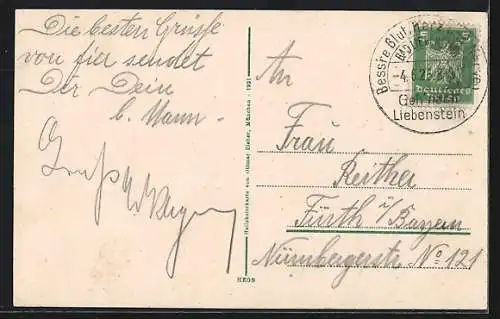 Die besten Grüsse
von hier sendet
Dir Dein
b. Mann.
Gruß
Heliokolorkarte von Ottmar Zieher, München - 1921
HEOS
An
Frau
Reither
Fürth i/Bayern
Nürnbergerstr No 121
5 5
Deutsches
Bessre Blut, Herz
-4.6.2
Geh nach
Liebenstein